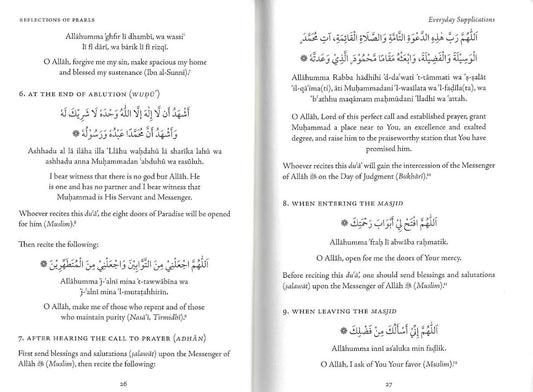 REFLECTIONS OF PEARLS
Allāhumma 'ghfir lī dhambī, wa wassi'
lī fī dārī, wa bārik lī fī rizqī.
O Allāh, forgive me my sin, make spacious my home
and blessed my sustenance (Ibn al-Sunnī).⁷
6. AT THE END OF ABLUTION (WUḌŪ')
أَشْهَدُ أَن لَّا إِلَهَ إِلَّا اللَّهُ وَحْدَهُ لَا شَرِيكَ لَهُ
وَأَشْهَدُ أَنَّ مُحَمَّدًا عَبْدُهُ وَرَسُولُهُ
Ashhadu al lā ilāha illa 'Llāhu waḥdahū lā sharīka lahū wa
ashhadu anna Muḥammadan 'abduhū wa rasūluh.
I bear witness that there is no god but Allāh. He
is one and has no partner and I bear witness that
Muḥammad is His Servant and Messenger.
Whoever recites this du'ā', the eight doors of Paradise will be opened
for him (Muslim).⁸
Then recite the following:
اَللَّهُمَّ اجْعَلْنِي مِنَ التَّوَّابِينَ وَاجْعَلْنِي مِنَ الْمُتَطَهِّرِينَ
Allāhumma 'j-'alnī mina 't-tawwābīna wa
'j-'alnī mina 'l-mutaṭahhirīn.
O Allāh, make me of those who repent and of those
who maintain purity (Nasā'ī, Tirmidhī).⁹
7. AFTER HEARING THE CALL TO PRAYER (ADHĀN)
First send blessings and salutations (ṣalawāt) upon the Messenger of
Allāh ﷺ (Muslim), then recite the following:
26
Everyday Supplications
اَللَّهُمَّ رَبَّ هَذِهِ الدَّعْوَةِ التَّامَّةِ وَالصَّلَاةِ الْقَائِمَةِ، آتِ مُحَمَّدَنِ
الْوَسِيلَةَ وَالْفَضِيلَةَ، وَابْعَثْهُ مَقَامًا مَحْمُودَنِ الَّذِيْ وَعَدتَّهُ
Allāhumma Rabba hādhihi 'l-da'wati 't-tāmmati wa 'ṣ-ṣalāt
'il-qā'ima(ti), āti Muḥammadani 'l-wasīlata wa 'l-faḍīla(ta), wa
'b'athhu maqāmam maḥmūdani 'lladhī wa'attah.
O Allāh, Lord of this perfect call and established prayer, grant
Muḥammad a place near to You, an excellence and exalted
degree, and raise him to the praiseworthy station that You have
promised him.
Whoever recites this du'ā' will gain the intercession of the Messenger
of Allāh ﷺ on the Day of Judgment (Bukhārī).¹⁰
8. WHEN ENTERING THE MASJID
اَللَّهُمَّ افْتَحْ لِيْ أَبْوَابَ رَحْمَتِكَ
Allāhumma 'ftaḥ lī abwāba raḥmatik.
O Allāh, open for me the doors of Your mercy.
Before reciting this du'ā', one should send blessings and salutations
(ṣalawāt) upon the Messenger of Allāh ﷺ (Muslim).¹¹
9. WHEN LEAVING THE MASJID
اَللَّهُمَّ إِنِّيْ أَسْأَلُكَ مِنْ فَضْلِكَ
Allāhumma innī as'aluka min faḍlik.
O Allāh, I ask of You Your favor (Muslim).¹²
27